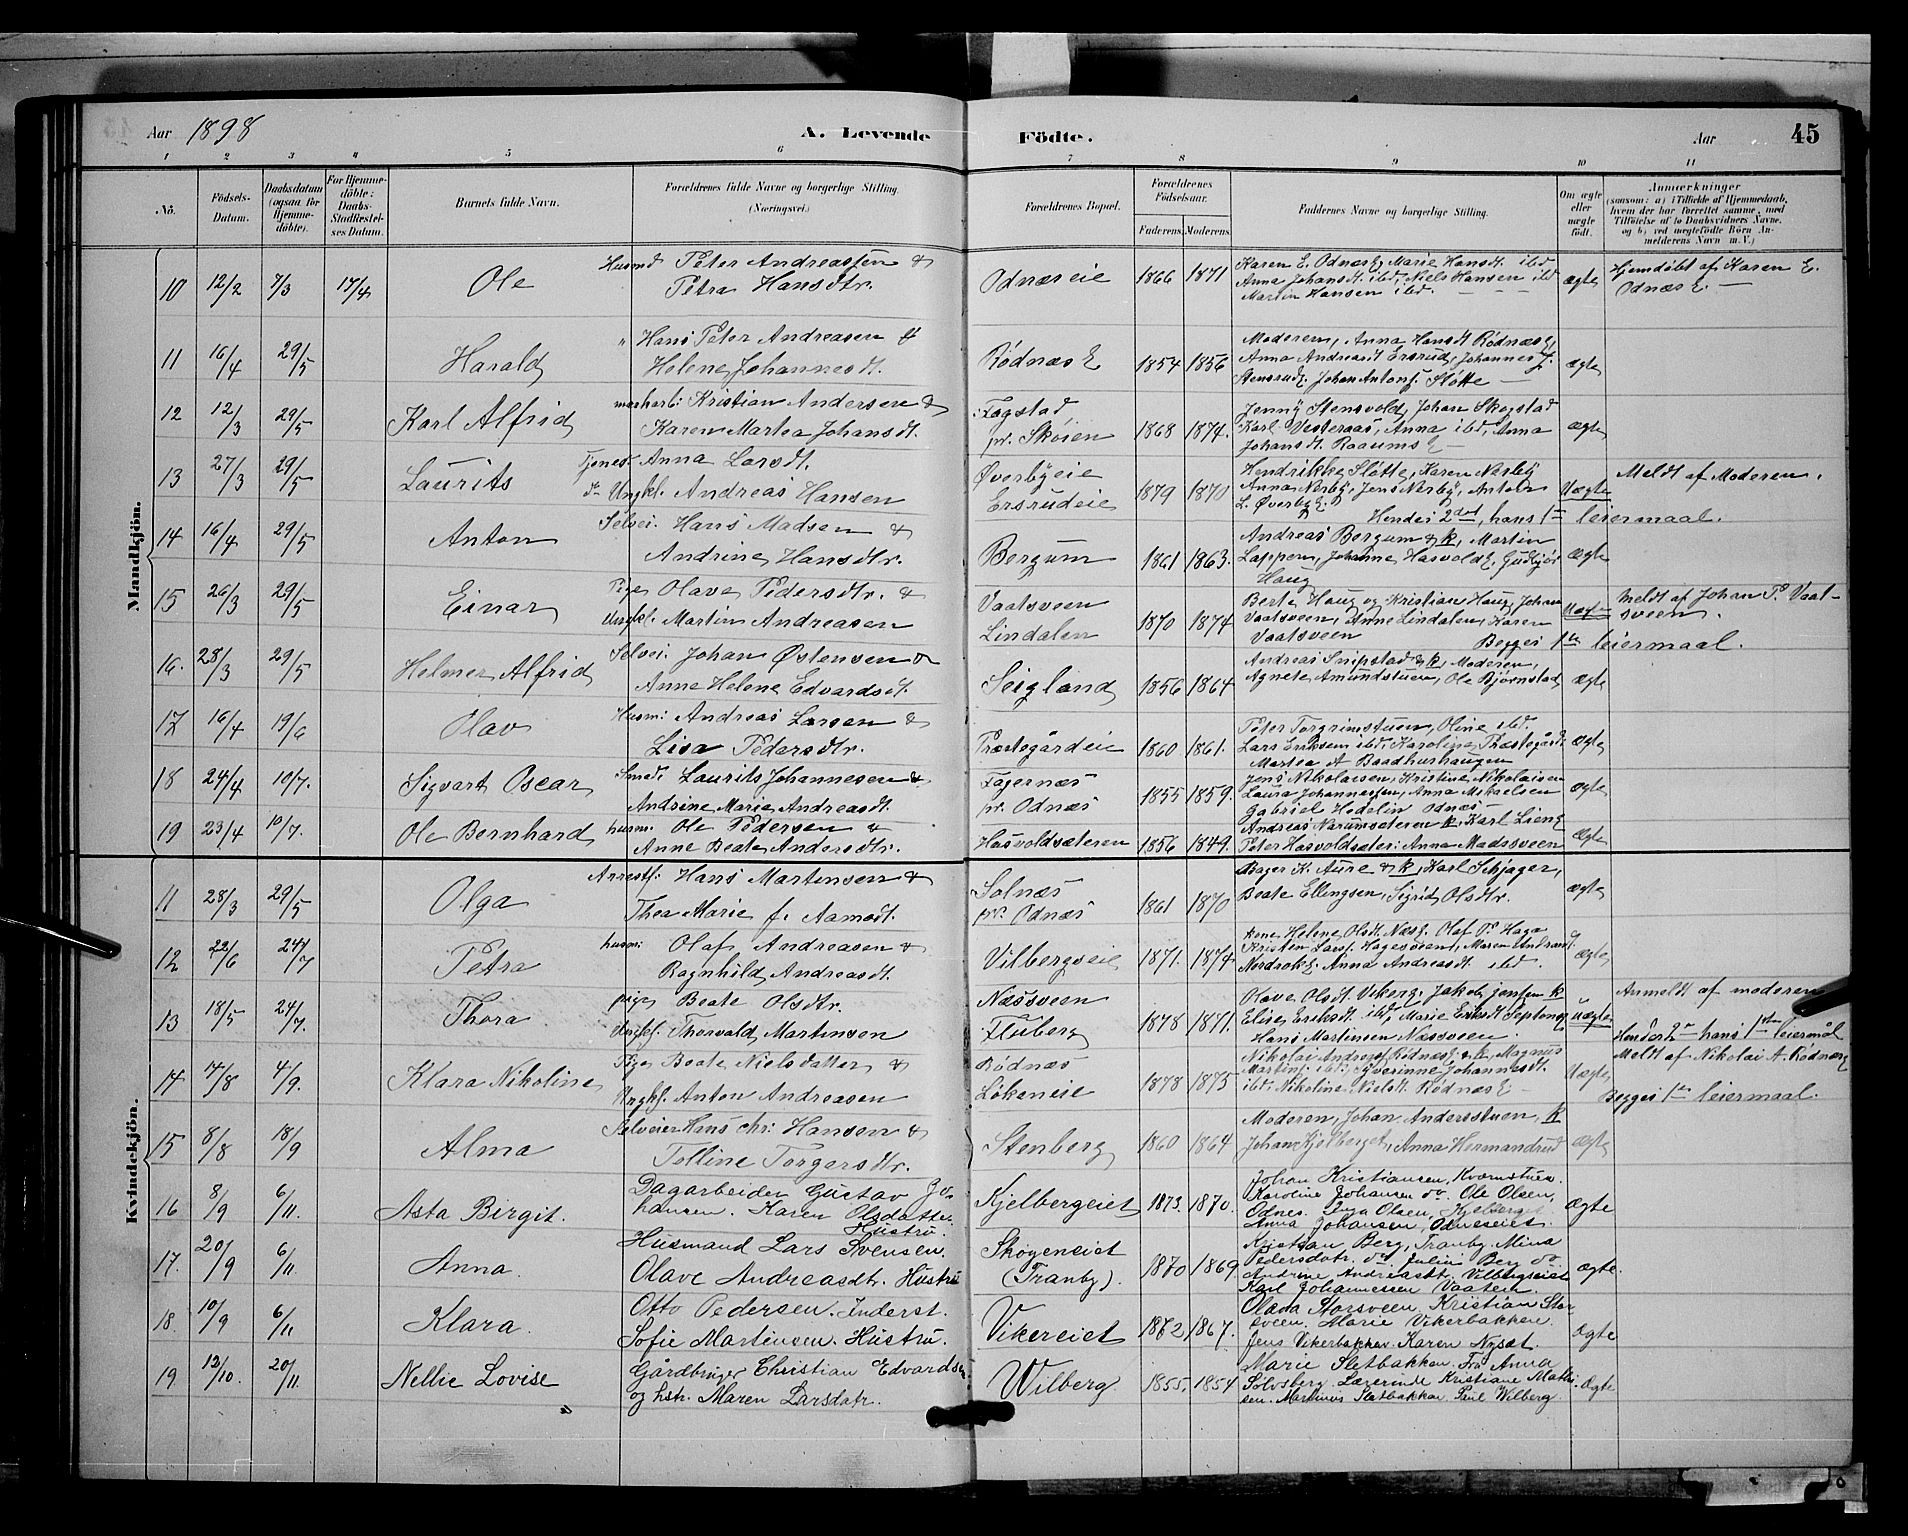 Aar 1898 A. Levende Födte. Aar 45
1 2 3 4 5 6 7 8 9 10 11
No. Födsels-Datum. Daabsdatum (ogsaa for Hjemme-döbte). For Hjemme-döbte: Daabs-Stadfæstel-ses Datum. Barnets fulde Navn. Forældrenes fulde Navne og borgerlige Stilling. (Næringsvei.) Forældrenes Bopæl. Forældrenes Födselsaar. Faderens. Moderens. Faddernes Navne og borgerlige Stilling. Om ægte eller uægte födt. Anmærkninger (saasom: a) i Tilfælde af Hjemmedaab, hvem der har forrettet samme, med Tilföielse af to Daabsvidners Navne, og b) ved uægtefödte Börn An-melderens Navn m. V.)
Mandkjön.
10 12/2 7/3 17/4 Ole Husmd Peter Andreassen &
Petra Hansdtr. Odnæseie 1866 1871 Karen E. Odnæs E, Marie Hansdt. ibd
Anna Johansdt. ibd, Niels Hansen ibd
Martin Hansen ibd. ægte Hjemdöbt af Karen E.
Odnæs E.
11 16/4 29/5 Harald " Hans Peter Andreasen &
Helene Johannesdt. Rødnæs E 1854 1856 Moderen, Anna Hansdt Rødnæs E,
Anna Andreasdt Ersrud, Johannes J.
Stensrud E. Johan Antons. Sløtte ægte
12 12/3 29/5 Karl Alfrid Kristian Andersen &
Karen Martea Johansdt. Fagstad
pr. Skøien 1868 1874. Jenny Stensvold, Johan Skogstad
Karl Vesteraas, Anna ibd, Anna
Johansdt. Raaums E ægte
13 27/3 29/5 Laurits Tjenest Anna Larsdt.
Ungkl. Andreas Hansen Øverbyeie
Ersrudeie 1879 1870 Hendrikke Sløtte, Karen Nerby
Anna Nerby, Jens Nerby, Anton
L. Øverby E. Uægte Meldt af Moderen.
Hendes 2det, hans 1te leiermaal.
14 16/4 29/5 Anton Selvei. Hans Madsen &
Andrine Hansdtr. Bergum 1861 1863. Andreas Bergum & k, Martin
Lappen, Johanne Hasvold E, Gudbjør
Haug ægte
15 26/3 29/5 Einar Pige Olave Pedersdtr. &
Ungkl. Martin Andreasen Vaatsveen
Lindalen 1870 1874 Berte Haug og Kristian Haug, Johan
Vaatsveen, Anne Lindalen, Karen
Vaatsveen Meldt af Johan P. Vaat-
sveen.
Begges 1te leiermaal.
16. 28/3 29/5 Helmer Alfrid Selvei. Johan Østensen &
Anne Helene Edvardsdt. Seigland 1856 1864 Andreas Snipstad & k, Moderen,
Agnete Amundstuen, Ole Bjørnstad ægte
17 16/4 19/6 Olav Husm: Andreas Larsen &
Lisa Pedersdtr. Præstegårdeie 1860 1861. Peter Torgrimstuen, Oline ibd.
Lars Eriksen ibd, Karoline Præstegård
Martea A Baadhushaugen ægte
18 24/4 10/7. Sigvart Oscar Smed: Laurits Johannesen &
Andrine Marie Andreasdt. Fagernæs
pr. Odnæs 1855 1859. Jens Nikolaisen, Kristine Nikolaisen
Laura Johannesen, Anna Mikkelsen
Gabriel Hedelin Odnæs ægte
19 23/4 10/7. Ole Bernhard husm: Ole Pedersen &
Anne Beate Andersdtr. Hasvoldsæteren 1856 1849. Andreas Narumseteren k, Karl Lien E
Peter Hasvoldsæter: Anna Madssveen ægte
Kvindekjön.
11 28/3 29/5 Olga Arrestf: Hans Martinsen &
Thea Marie f. Aamodt. Solnæs
pr. Odnæs 1861 1870 Bager K. Aure & k, Karl Schjager,
Beate Ellingsen, Sigrid Olsdtr. ægte
12 22/6 24/7 Petra husm: Olaf Andreasen &
Ragnhild Andreasdt. Vilbergseie 1871. 1874. Arne Helene Olsdt. Næs E. Olaf P. Haga
Kristen Lars. Hagesveen, Maren Andreasd.
Nordrok E. Anna Andreasdt. ibd. ægte
13 18/5 24/7. Thora pige Beate Olsdtr.
Ungkl. Thorvald Martinsen Næssveen
Fluberg 1878 1871. Olave Olsdt. Viker E. Jakob Jensen k
Elise Eriksdt. ibd, Marie Eriksdt
Hans Martinsen Næssveen uægte Anmeldt af moderen
Hendes 2 hans 1ste leiermål
14 7/8 4/9. Klara Nikoline Pige Beate Nielsdatter &
Ungkl. Anton Andreasen Rødnæs
Lökeneie 1878 1875 Nikolai Andreas. Rødnæs E & k, Magnus
Martins. ibd, Syverinne Johannesdt.
ibd, Nikoline Nielsdt. Rødnæs E Uægte Meldt af Nikolai A. Rødnæs E
Begges 1te leiermaal.
15 8/8 18/9 Alma Selveier Hans Chr: Hansen &
Tolline Torgersdtr. Stenberg 1860 1864 Moderen, Johan Andersstuen, k
Johan Kjelberget, Anna Hermandrud ægte
16 8/9 6/11. Asta Birgit. Dagarbeider Gustav Jo-
hansen. Karen Olsdatter
Hustru. Kjelbergeiet 1873. 1870. Johan Kristiansen, Kværnstuen.
Karoline Johansen do. Ole Olsen,
Odnes. Inga Olsen, Kjelberget
Anna Johansen, Odneseiet. Ægte
17. 20/9 6/11. Anna. Husmand Lars Svensen.
Olave Andreasdtr. Hustru Skogeneiet
(Tranby). 1870 1869. Kristian Berg, Tranby. Mina
Pedersdatr. do. Julius Berg do
Andrine Andreasdtr. Vilbergseiet
Karl Johannessen Vaatein. Ægte.
18. 10/9 6/11 Klara. Otto Pedersen. Inderst.
Sofie Martinsen. Hustru. Vikereiet 1872 1867. Olava Storsveen. Kristian Stor-
sveen. Marie Vikerbakken.
Jens Vikerbakken. Karen Nysæt. Ægte
19 12/10. 20/11. Nellie Lovise Gårdbruger Christian Edvardsen
og hstr. Maren Larsdatr. Wilberg. 1855. 1854 Marie Sletbakken. Frø Anna
Sølvsberg. Lærerinde Kristiane Mathi-
sen. Martinus Sletbakken. Paul Wilberg. Ægte